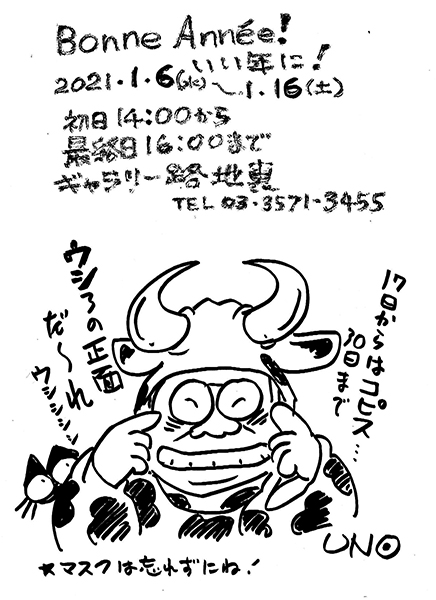 Bonne Année!
いい年に!
2021.1.6(水)〜1.16(土)
初日14:00から
最終日16:00まで
ギャラリー路地裏
TEL 03-3571-3455
ウシろの正面
だ〜れ
ウシシシシ
17日からはコピス…
30日まで
UNO
★マスクは忘れずにね!